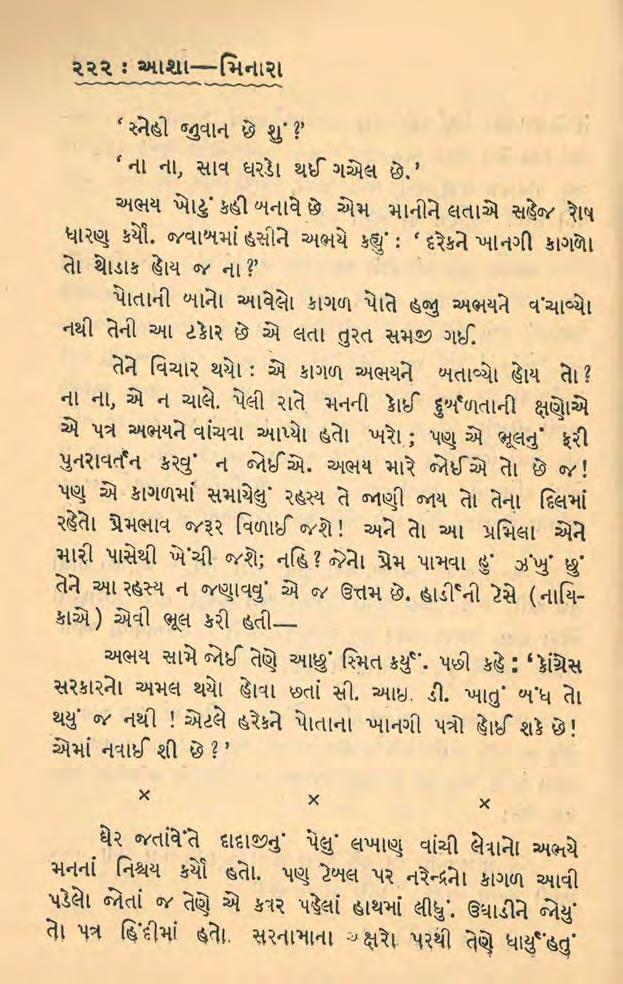 ૨૨૨ : આશા—મિનારા
‘સ્નેહી જુવાન છે શું ?’
‘ના ના, સાવ ઘરડો થઈ ગએલ છે.’
અભય ખોટું કહી બનાવે છે એમ માનીને લતાએ સહેજ રોષ
ધારણ કર્યો. જવાબમાં હસીને અભયે કહ્યું : ‘દરેકને ખાનગી કાગળો
તો થોડાક હોય જ ના ?’
પોતાની બાનો આવેલો કાગળ પોતે હજી અભયને વંચાવ્યો
નથી તેની આ ટકોર છે એ લતા તુરત સમજી ગઈ.
તેને વિચાર થયો : એ કાગળ અભયને બતાવ્યો હોય તો ?
ના ના, એ ન ચાલે. પેલી રાતે મનની કોઈ દુર્બળતાની ક્ષણોએ
એ પત્ર અભયને વાંચવા આપ્યો હતો ખરો ; પણ એ ભૂલનું ફરી
પુનરાવર્તન કરવું ન જોઈએ. અભય મારે જોઈએ તો છે જ !
પણ એ કાગળમાં સમાયેલું રહસ્ય તે જાણી જાય તો તેના દિલમાં
રહેતો પ્રેમભાવ જરૂર વિળાઈ જશે ! અને તો આ પ્રમિલા એને
મારી પાસેથી ખેંચી જશે; નહિ ? જેનો પ્રેમ પામવા હું ઝંખું છું
તેને આ રહસ્ય ન જણાવવું એ જ ઉત્તમ છે. હાર્ડીની ટેસે (નાયિ-
કાએ ) એવી ભૂલ કરી હતી—
અભય સામે જોઈ તેણે આછું સ્મિત કર્યું. પછી કહે : ‘કોંગ્રેસ
સરકારનો અમલ થયો હોવા છતાં સી. આઇ. ડી. ખાતું બંધ તો
થયું જ નથી ! એટલે હરેકને પોતાના ખાનગી પત્રો હોઈ શકે છે !
એમાં નવાઈ શી છે ?’
× × ×
ઘેર જતાંવેંત દાદાજીનું પેલું લખાણ વાંચી લેવાનો અભયે
મનનાં નિશ્ચય કર્યો હતો. પણ ટેબલ પર નરેન્દ્રનો કાગળ આવી
પડેલો જોતાં જ તેણે એ કવર પહેલાં હાથમાં લીધું. ઉઘાડીને જોયું
તો પત્ર હિંદીમાં હતો. સરનામાના અક્ષરો પરથી તેણે ધાર્યું હતું